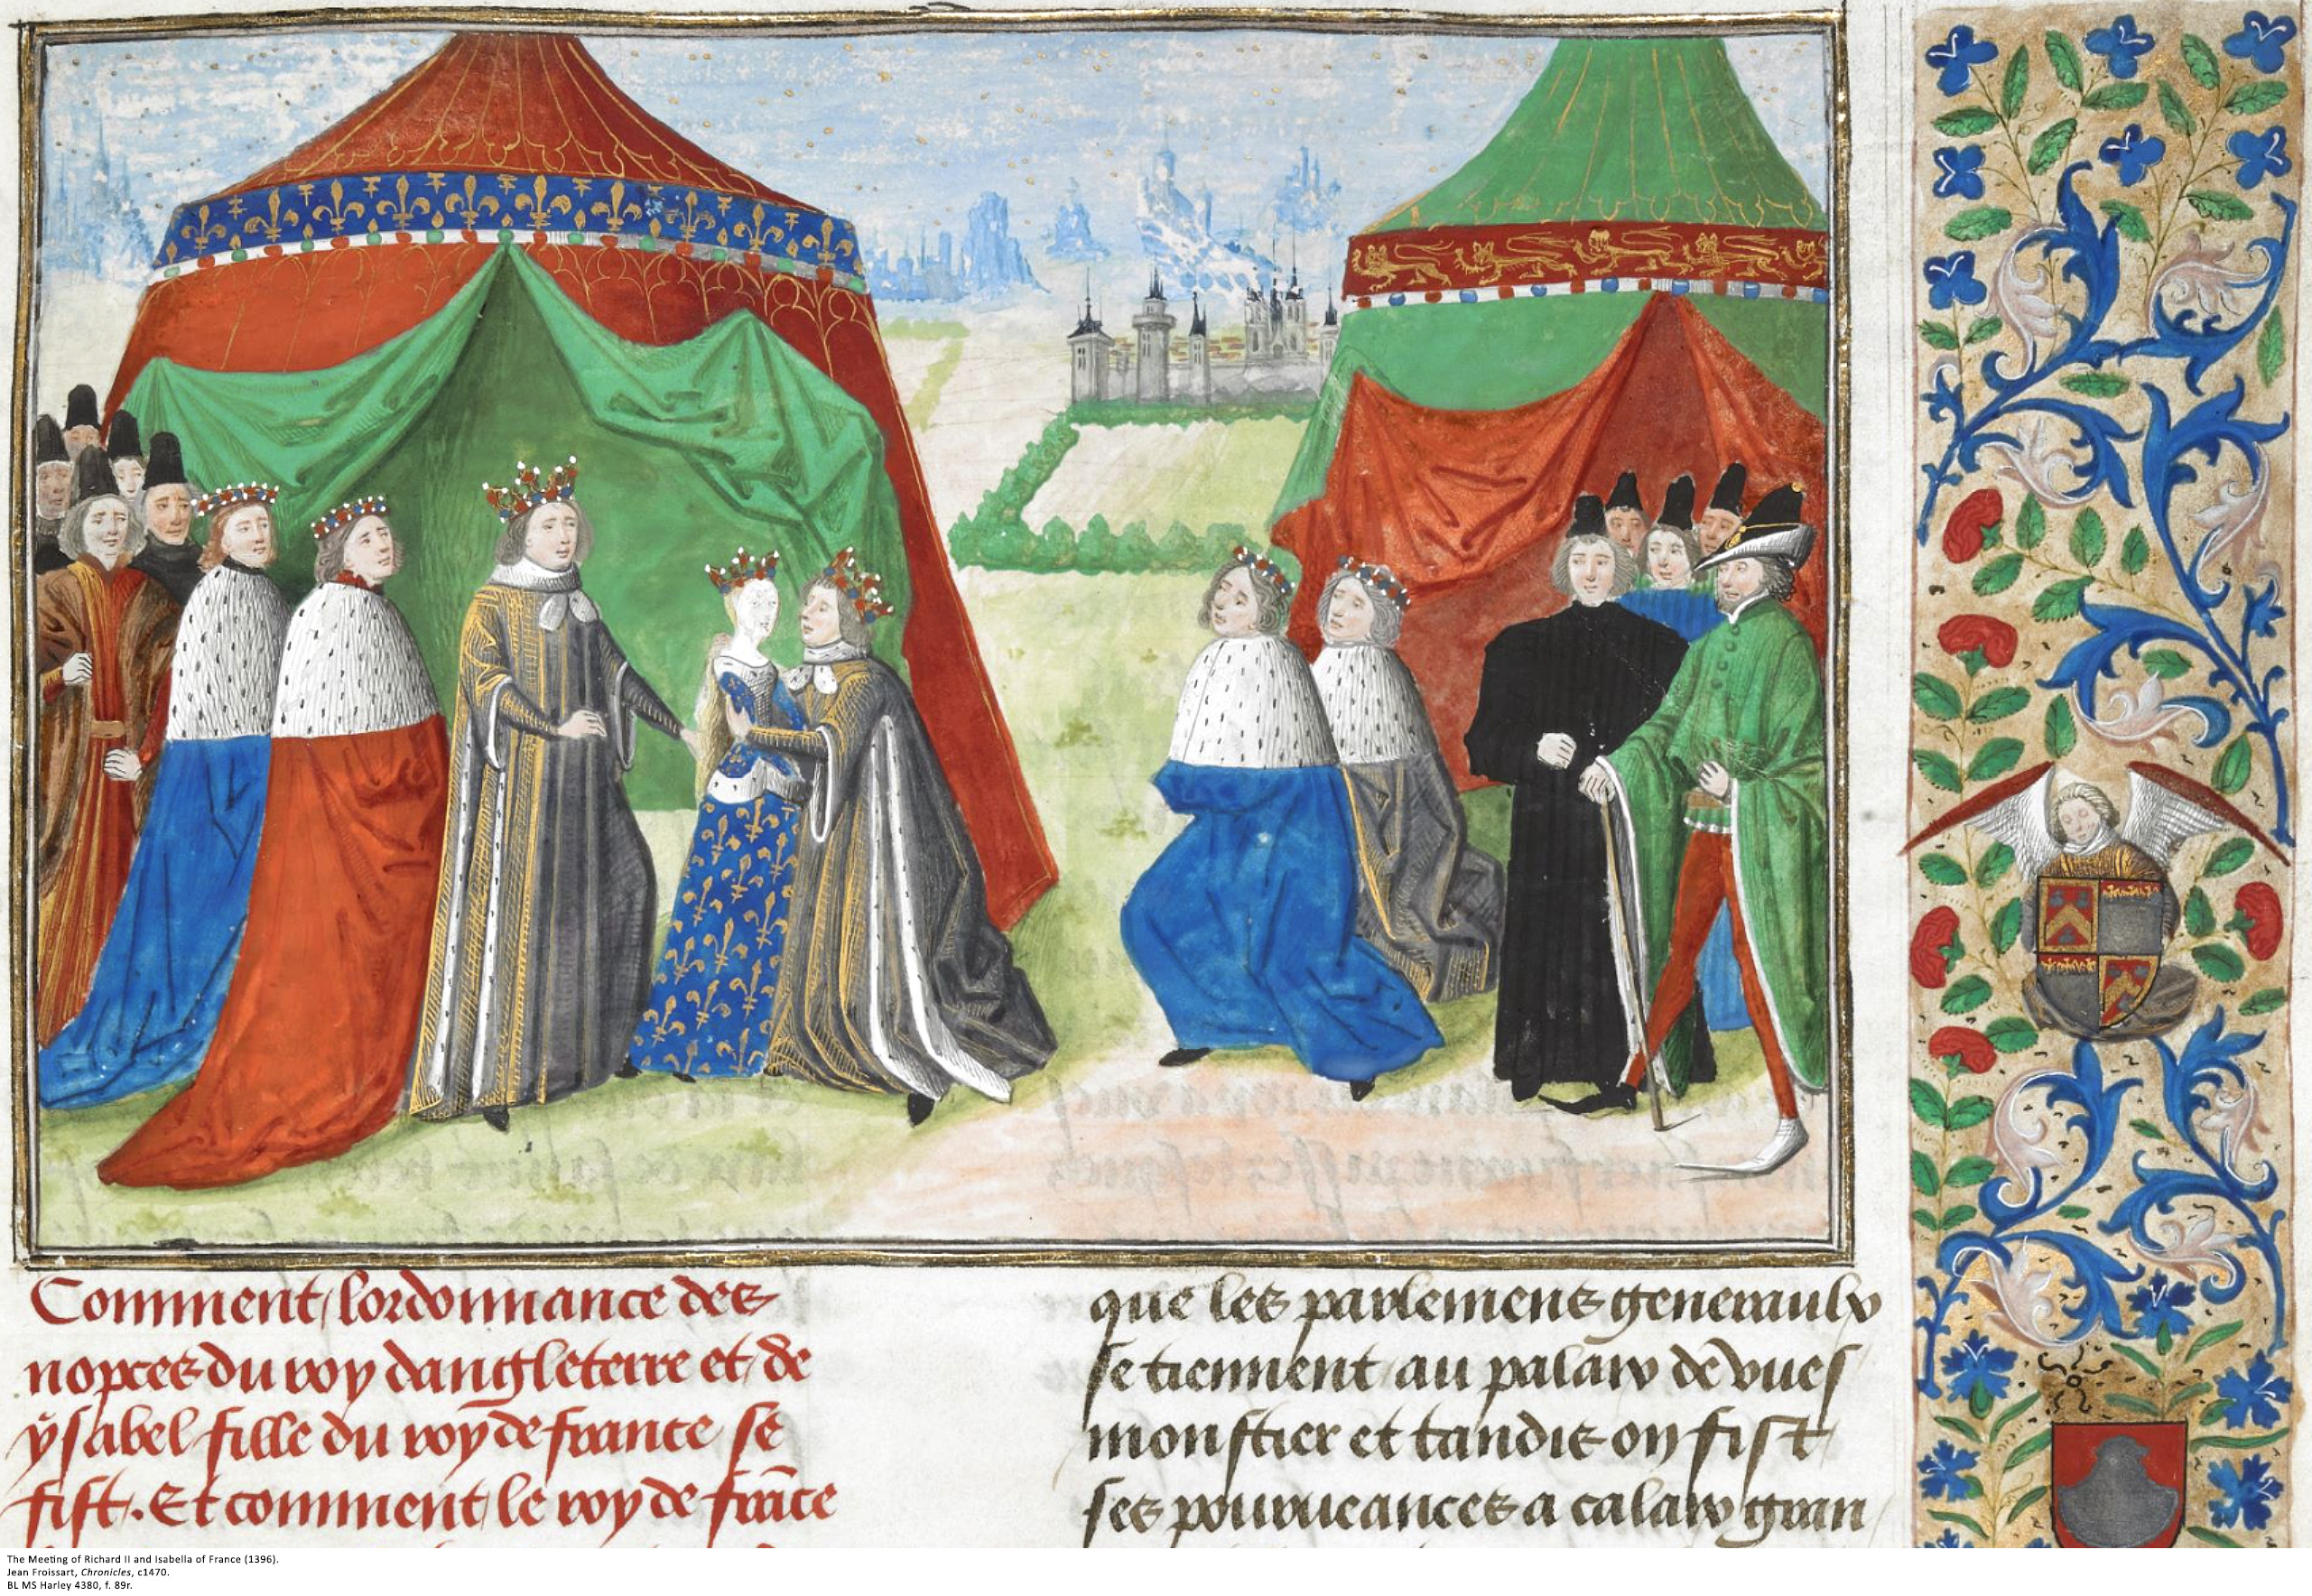 Comment lordonnance des
nopces du roy dangleterre et de
ysabel fille du roy de france se
fist. Et comment le roy de frāce
que les parlemens generaulx
se tiennent au palaix de vues
monstier et tandis on fist
ses pourueances a calaix gran
The Meeting of Richard II and Isabella of France (1396).
Jean Froissart, Chronicles, c1470.
BL MS Harley 4380, f. 89r.